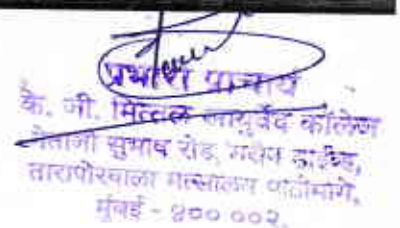 प्रभारी प्राचार्य
के. जी. मित्तल आयुर्वेद कॉलेज
नेताजी सुभाष रोड, मरीन ड्राईव्ह,
तारापोरवाला मत्सालय पाठीमागे,
मुंबई - ४०० ००२.